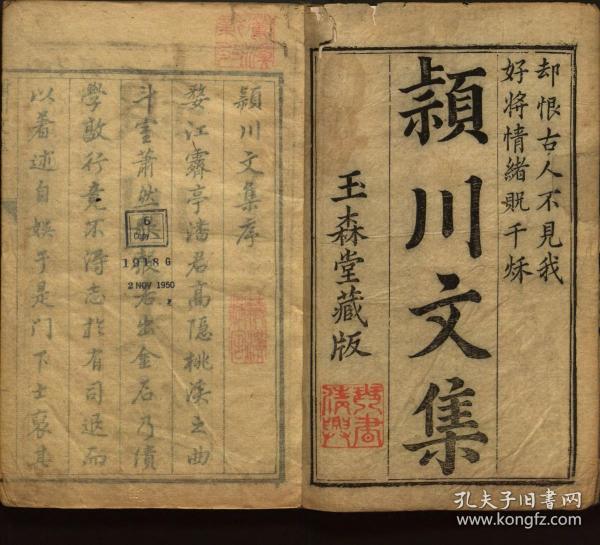 却恨古人不見我
好將情緒貺千秌
頴川文集
玉森堂藏版
頴川文集序
婺江霽亭潘君高隱桃溪之曲
斗室蕭然若出金石乃績
學敦行竟不得志於有司退而
以著述自娛于是門下士裒其
6
1918 G
2 NOV 1950
孔夫子旧书网
www.kongfz.com